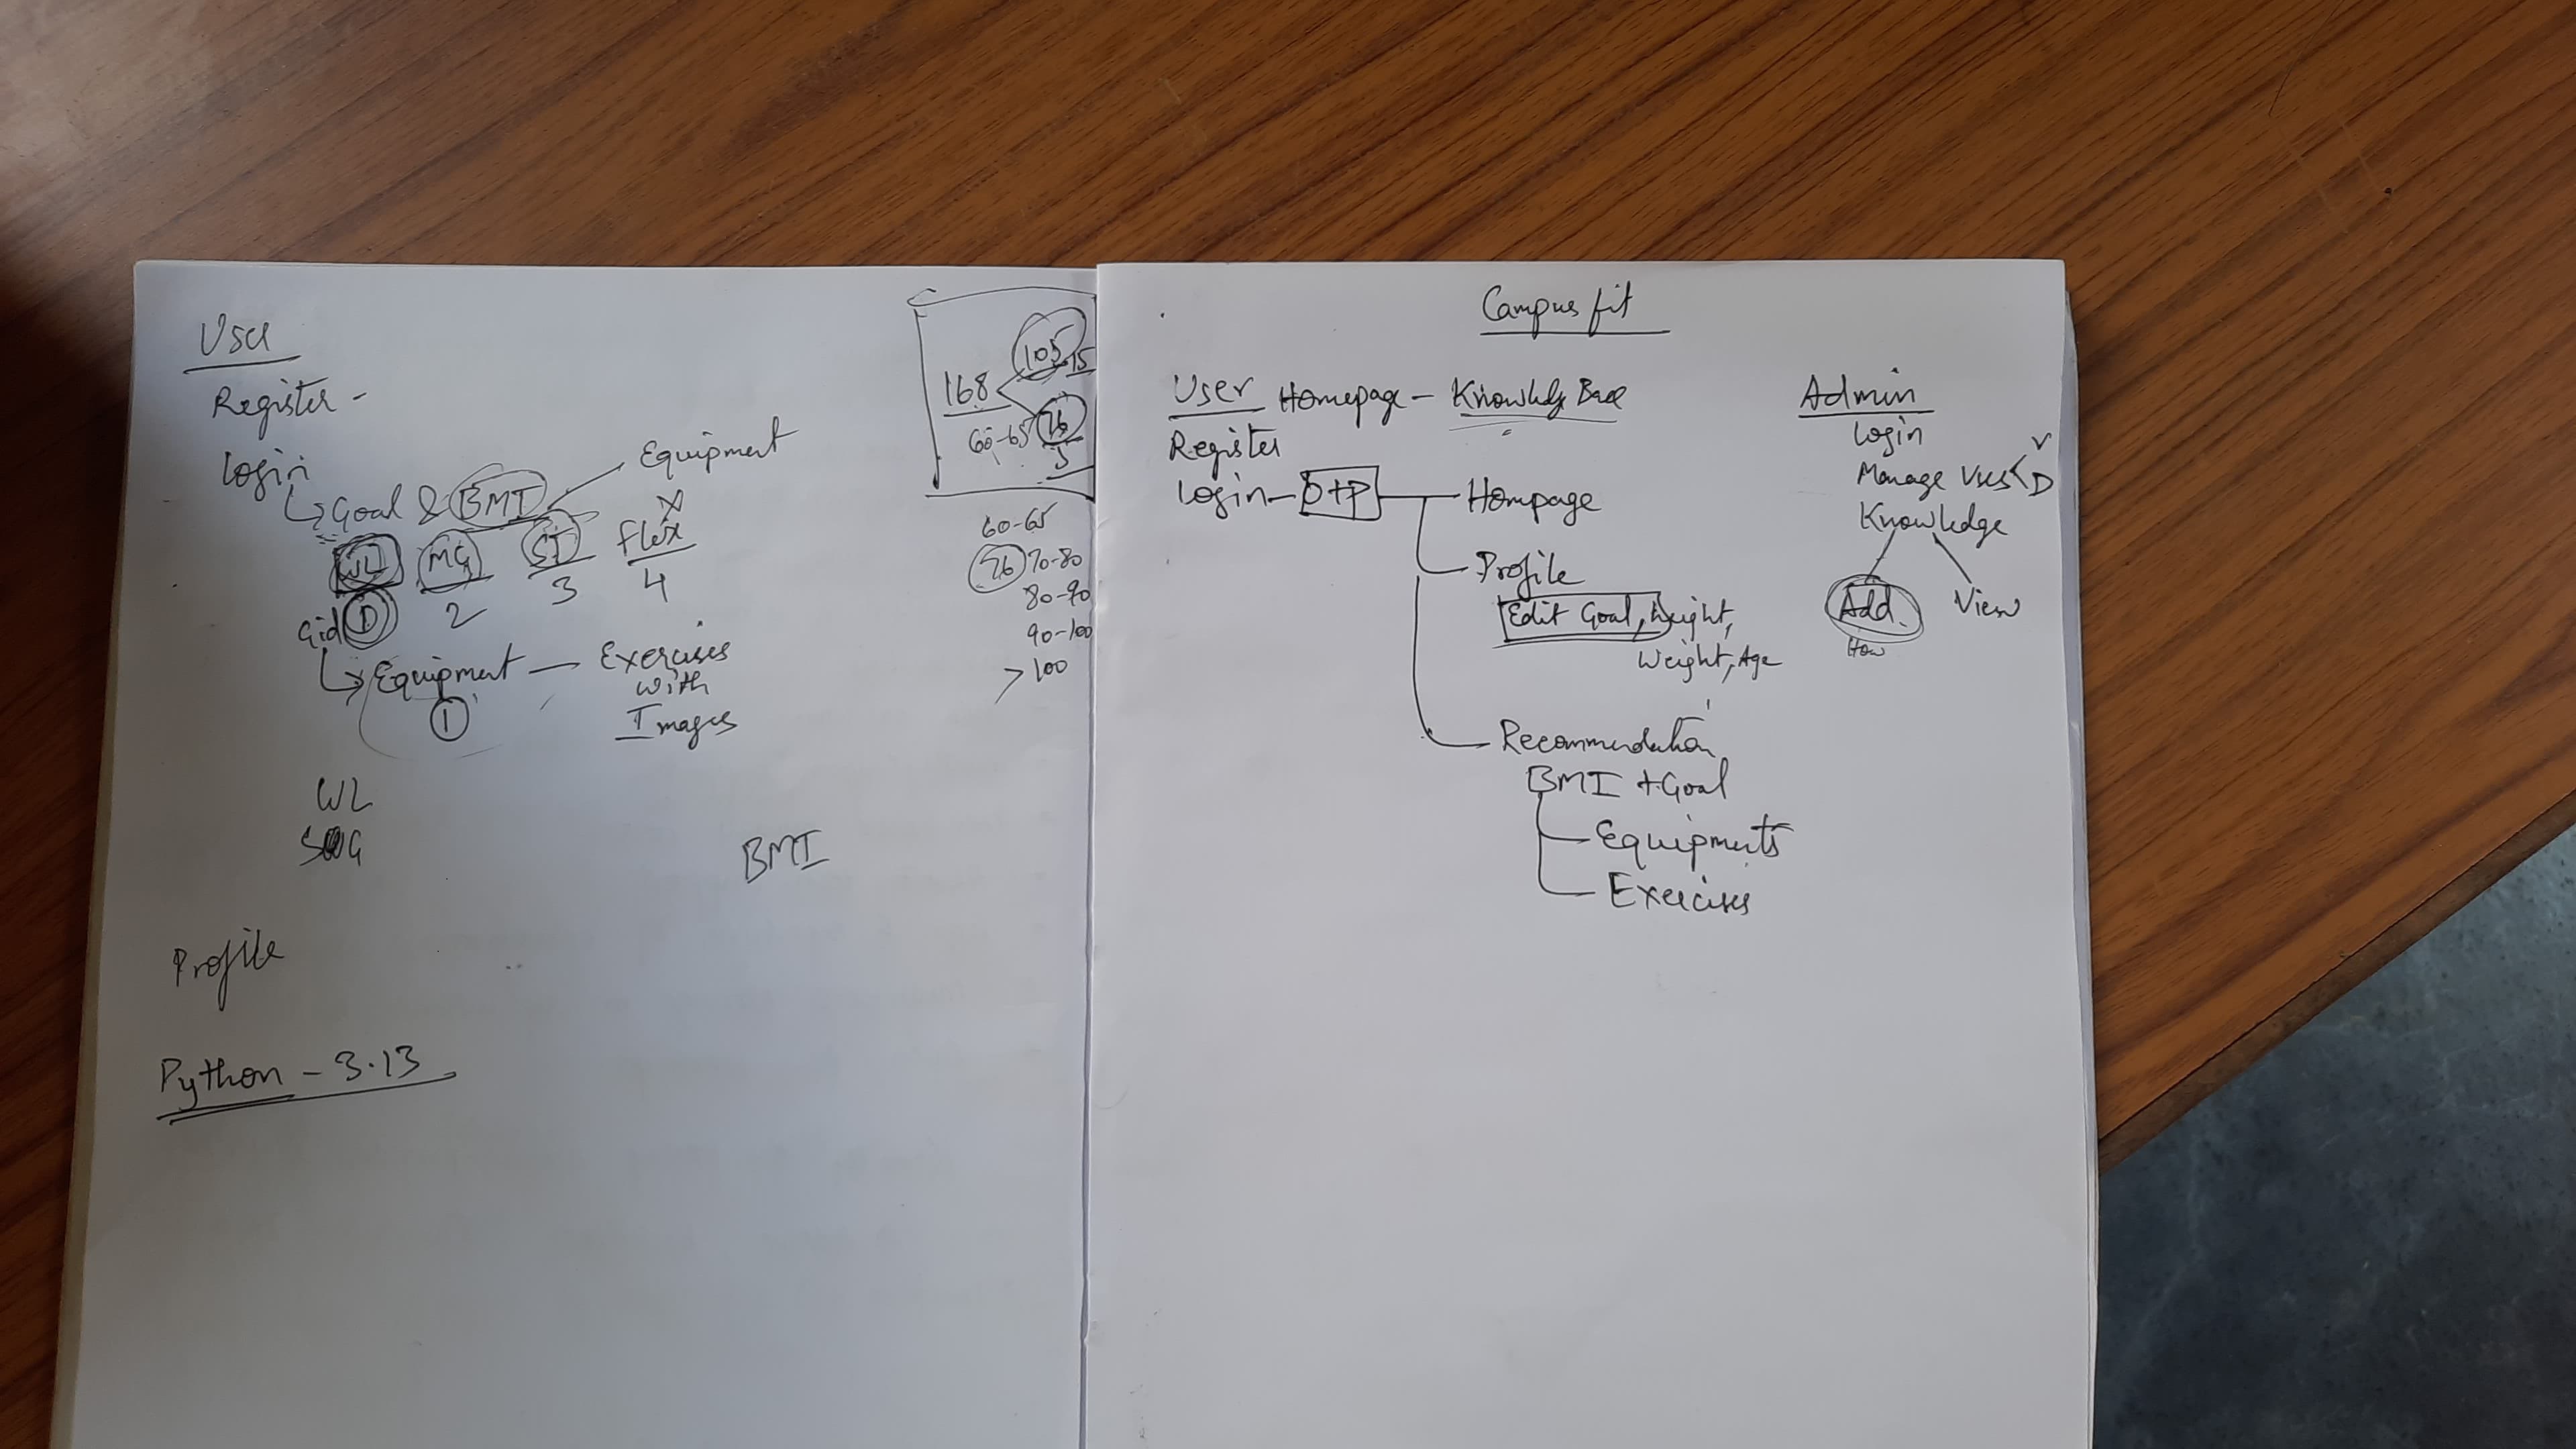 User
Register -
Login
Goal & BMI
Equipment
WL MG ST Flex X
Gid 1 2 3 4
Equipment — Exercises
with
Images
1
WL
BMI
Profile
Python - 3.13
105 15
168
60-65 76
5
60-65
76 70-80
80-90
90-100
> 100
Campus fit
User Homepage - Knowledge Base
Register
Login - OTP - Hompage
Profile
Edit Goal, height,
Weight, Age
Recommendation
BMI + Goal
Equipments
Exercises
Admin
Login
Manage Users < V
D
Knowledge
Add View
How